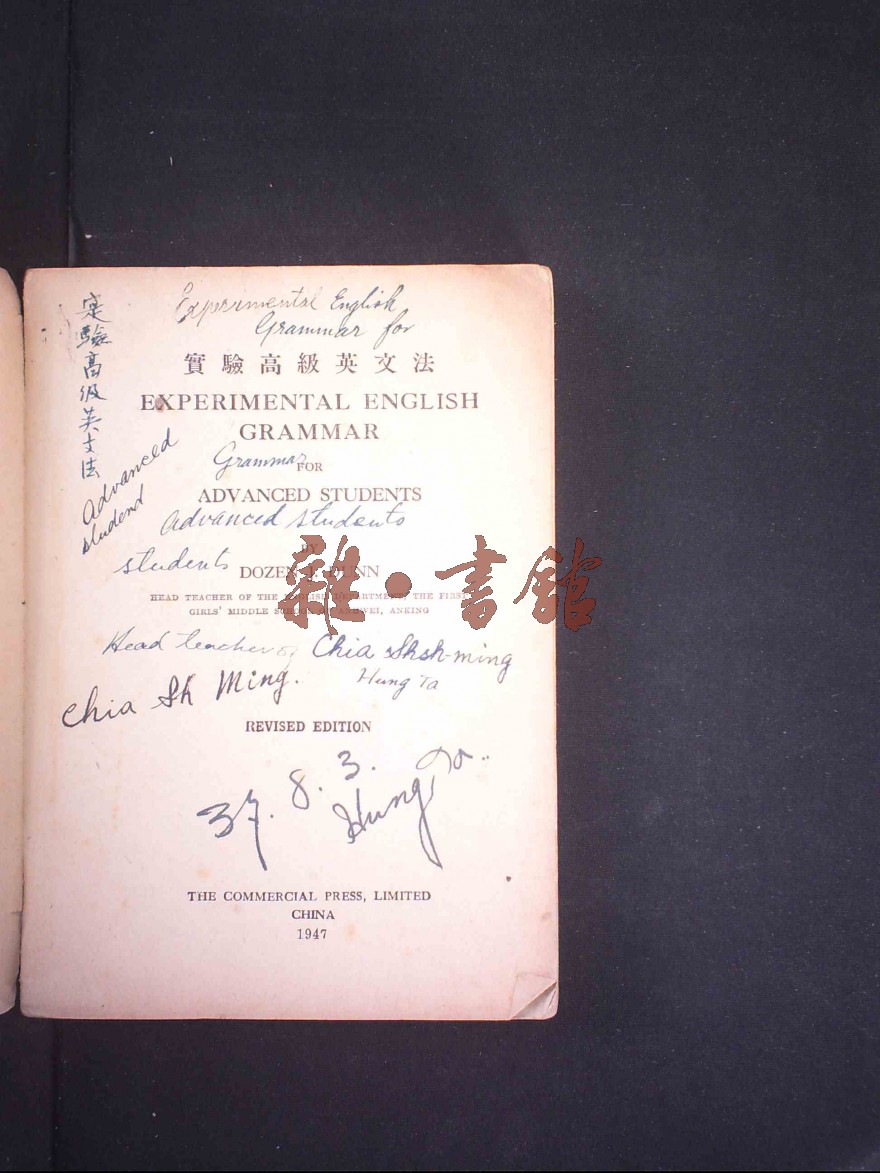 Experimental English
Grammar for
實驗高級英文法
實驗高級英文法
EXPERIMENTAL ENGLISH
GRAMMAR
Grammar
FOR
Advanced
student
ADVANCED STUDENTS
Advanced students
BY
students
DOZEN J. DUNN
雜·書館
HEAD TEACHER OF THE ENGLISH DEPARTMENT, THE FIRST
GIRLS' MIDDLE SCHOOL ANHWEI, ANKING
Head teacher of Chia Shsh-ming
Hung Ta
Chia Sh Ming.
REVISED EDITION
37. 8. 3.
Hung Ta..
THE COMMERCIAL PRESS, LIMITED
CHINA
1947